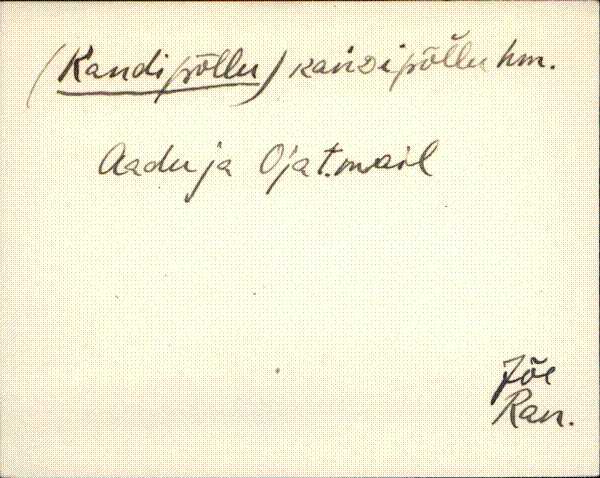 (Kandipõllu) kandipõl̆lu hm.
Aadu ja Oja t. mail
Jõe
Ran.